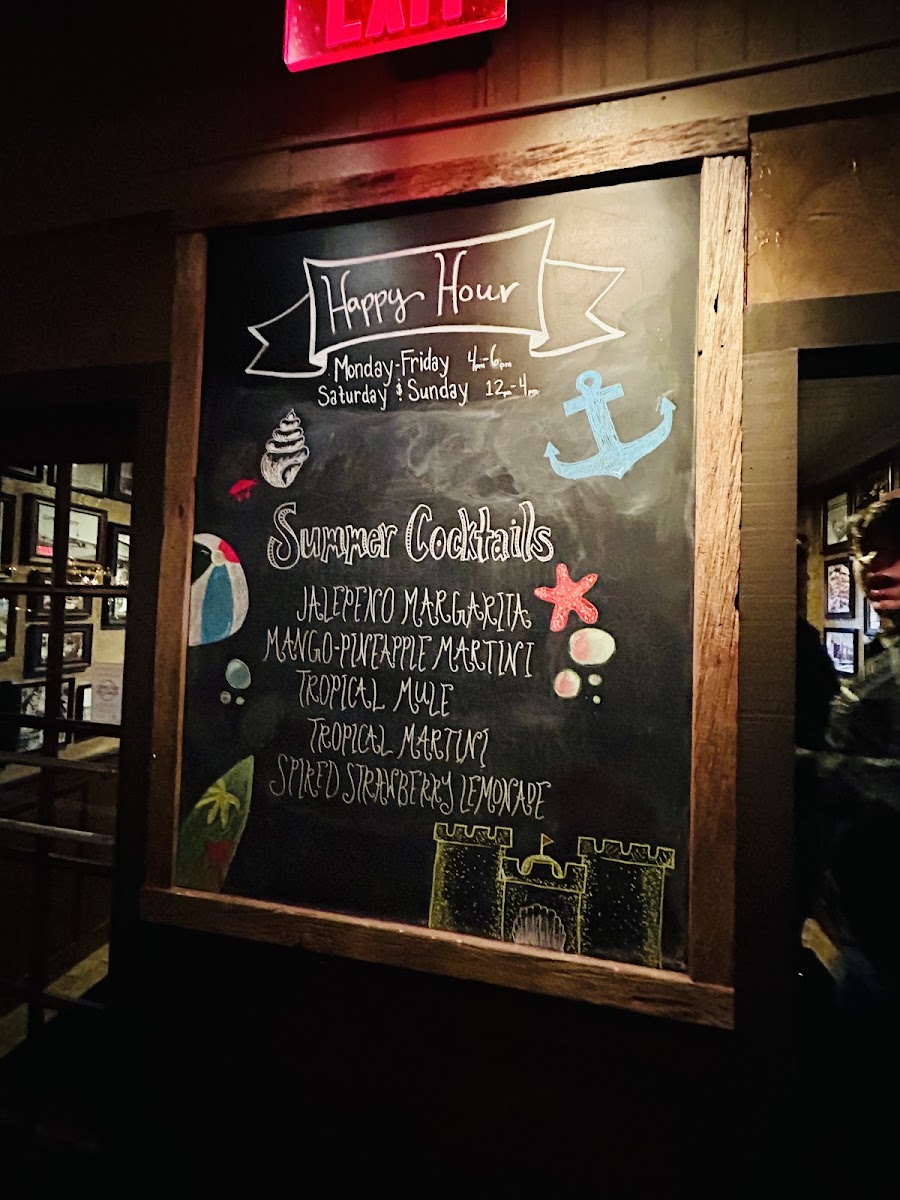 EXIT
Happy Hour
Monday-Friday 4pm-6pm
Saturday & Sunday 12pm-4pm
Summer Cocktails
JALEPENO MARGARITA
MANGO-PINEAPPLE MARTINI
TROPICAL MULE
TROPICAL MARTINI
SPIRED STRAWBERRY LEMONADE